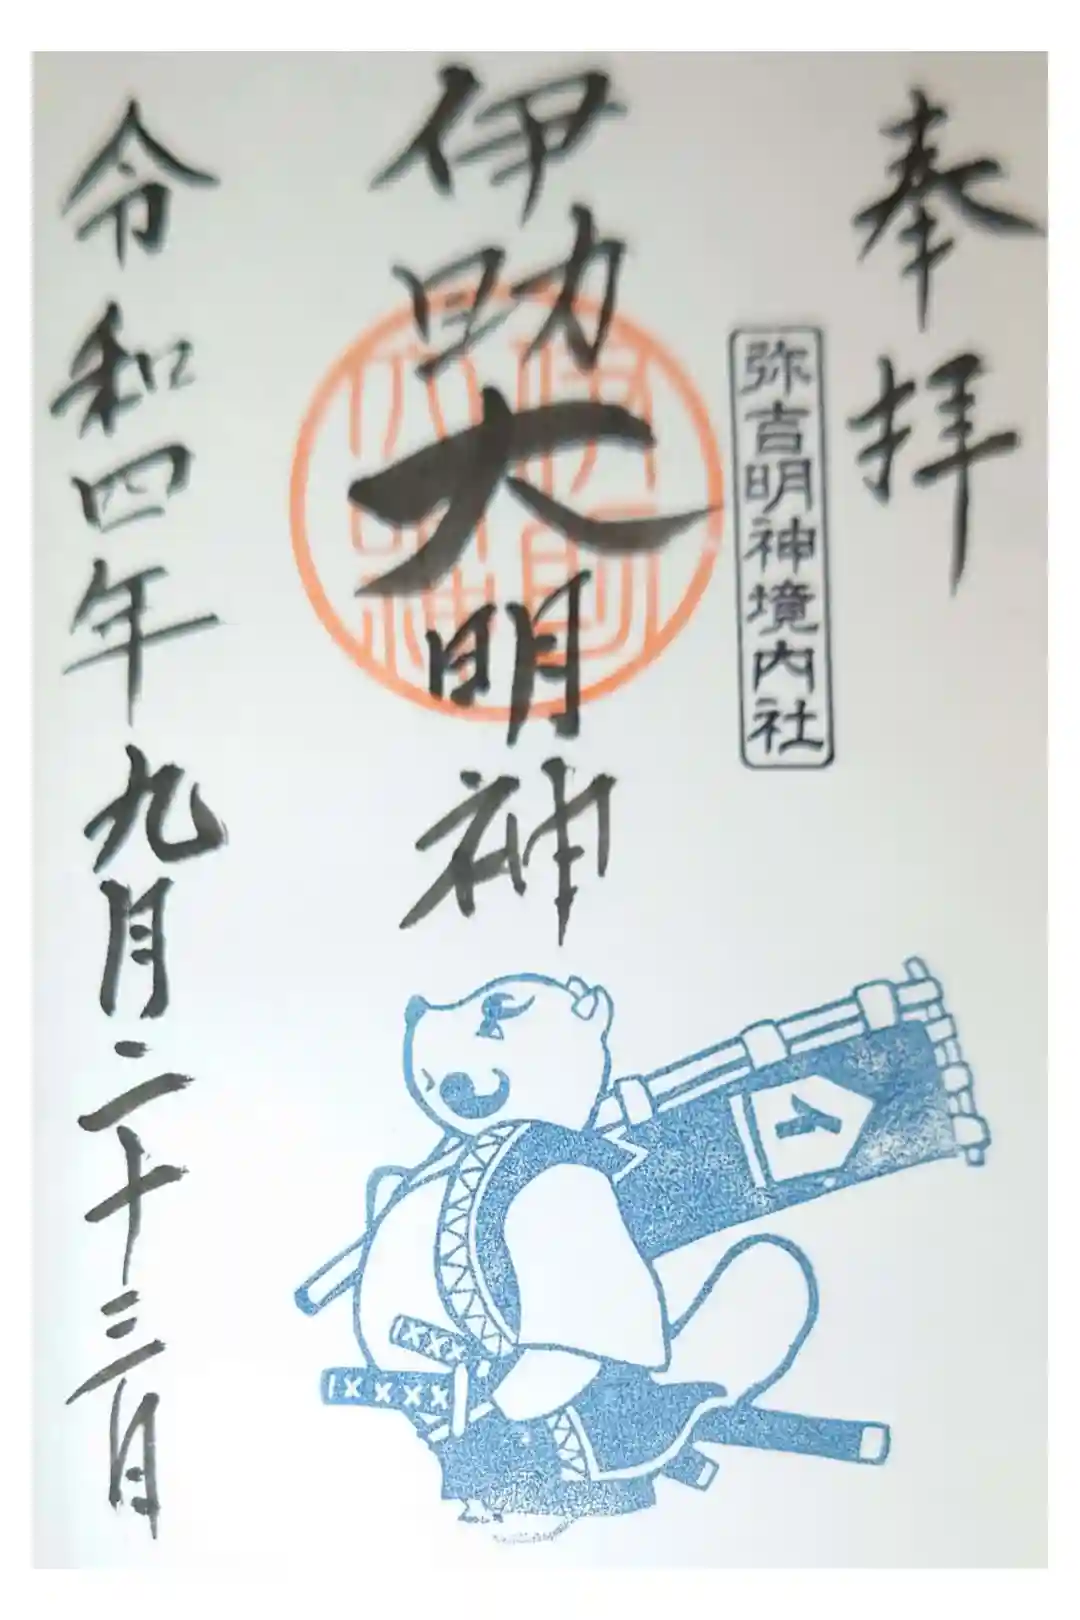 奉拝
弥吉明神境内社
伊助大明神
令和四年九月二十三日
イ